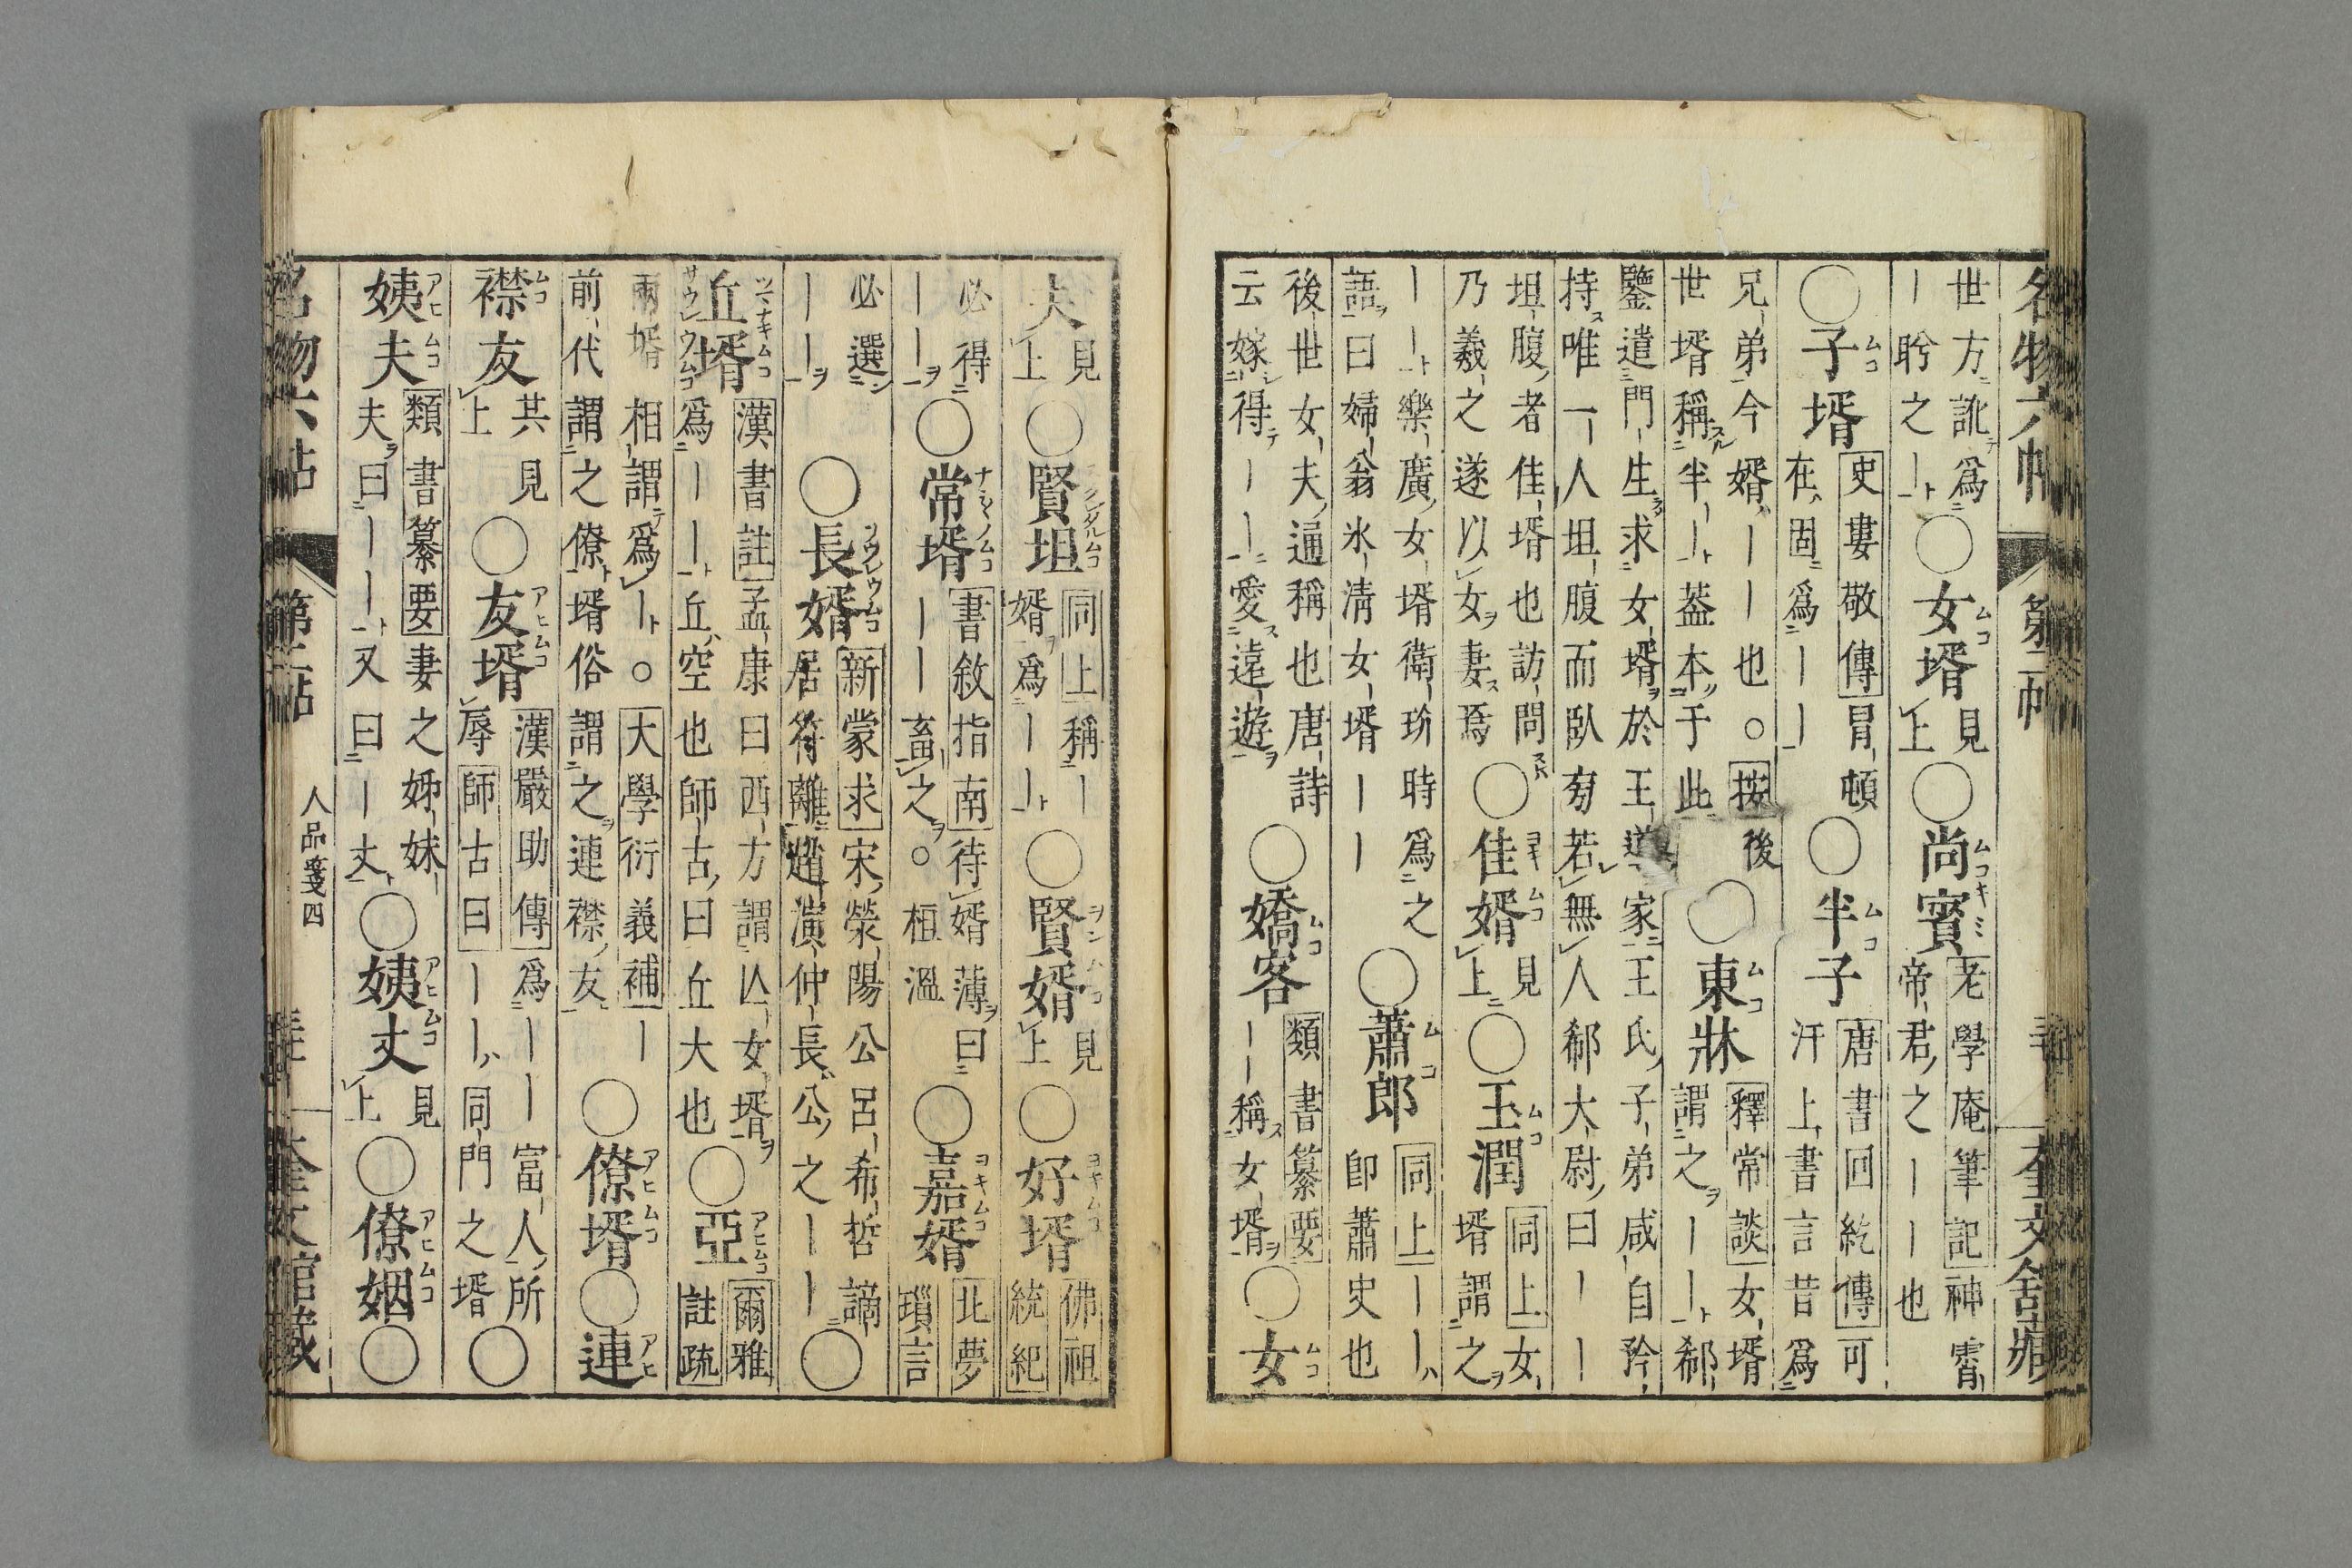 名物六帖 第二帖 奎文舘藏
世方訛爲○女壻見上○尚賓老學庵筆記神霄
｜盻之｜帝君之｜｜也
○子壻史婁敬傳冒頓在固爲｜｜○半子唐書回紇傳可汗上書言昔爲
兄弟今婿｜｜也○按後世壻稱半｜蓋本于此○東牀釋常談女壻謂之｜｜郗
鑒遣門生求女壻於王導家王氏子弟咸自矜
持唯一人坦腹而臥旁若無人郗大尉曰｜｜
坦腹者佳壻也訪問乃羲之遂以女妻焉○佳婿見上○玉潤同上女壻謂之
｜｜樂廣女壻衛玠時爲之語曰婦翁氷清女壻｜｜○蕭郎同上｜｜卽蕭史也
後世女夫通稱也唐詩云嫁得｜｜愛遠遊○嬌客類書纂要｜｜稱女壻○女
夫見上○賢坦同上稱｜婿爲｜｜○賢婿見上○好壻佛祖統紀
必得｜｜○常壻書敘指南待婿薄曰｜｜畜之○桓溫○嘉婿北夢瑣言
必選｜｜○長婿新蒙求宋滎陽公呂希哲謫居符離趙演仲長公之｜｜○
丘壻漢書註孟康曰西方謂亾女壻爲｜｜丘空也師古曰丘大也○亞爾雅註疏
兩壻相謂爲｜○大學衍義補｜前代謂之僚壻俗謂之連襟友○僚壻○連
襟友共見上○友壻漢嚴助傳爲｜｜富人所辱師古曰｜｜同門之壻○
姨夫類書纂要妻之姊妹夫曰｜｜又曰｜丈○姨丈見上○僚姻○
名物六帖 第二帖 人品箋四 奎文館藏